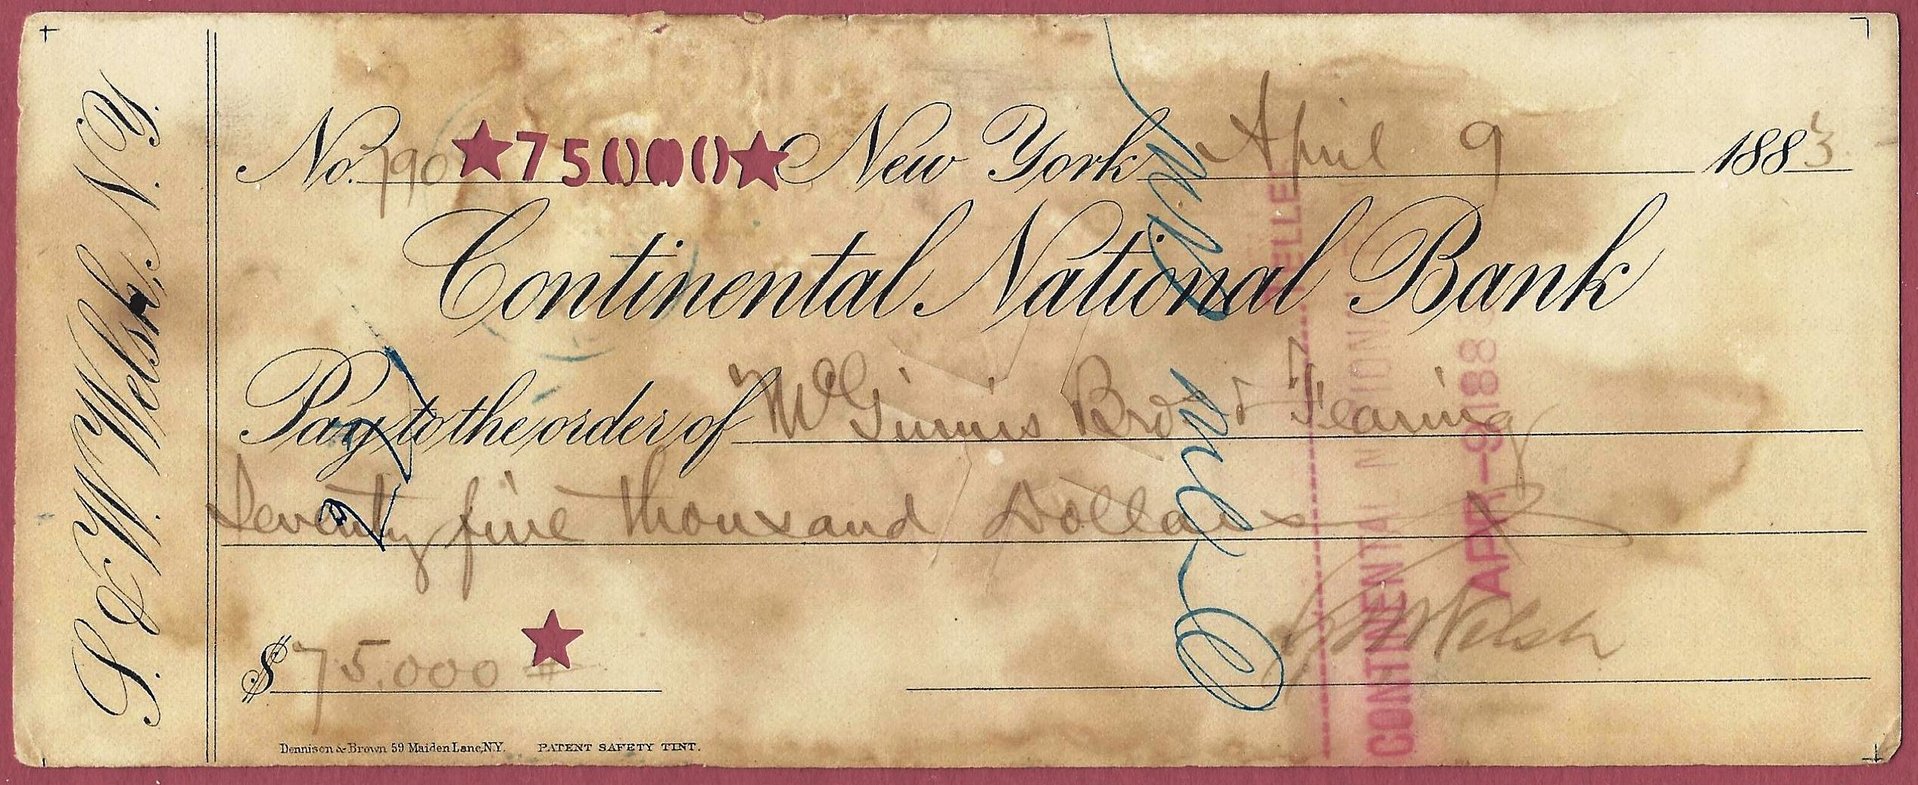 S. & W. Welsh, N.Y.
No. 790 ★75000★ New York April 9 1883
Continental National Bank
Pay to the order of McGinnis Bros & Fearing
Seventy five thousand Dollars
$ 75.000
S & W Welsh
Dennison & Brown 59 Maiden Lane, N.Y. PATENT SAFETY TINT.
TELLER
CONTINENTAL NATIONAL
APR-9 1883